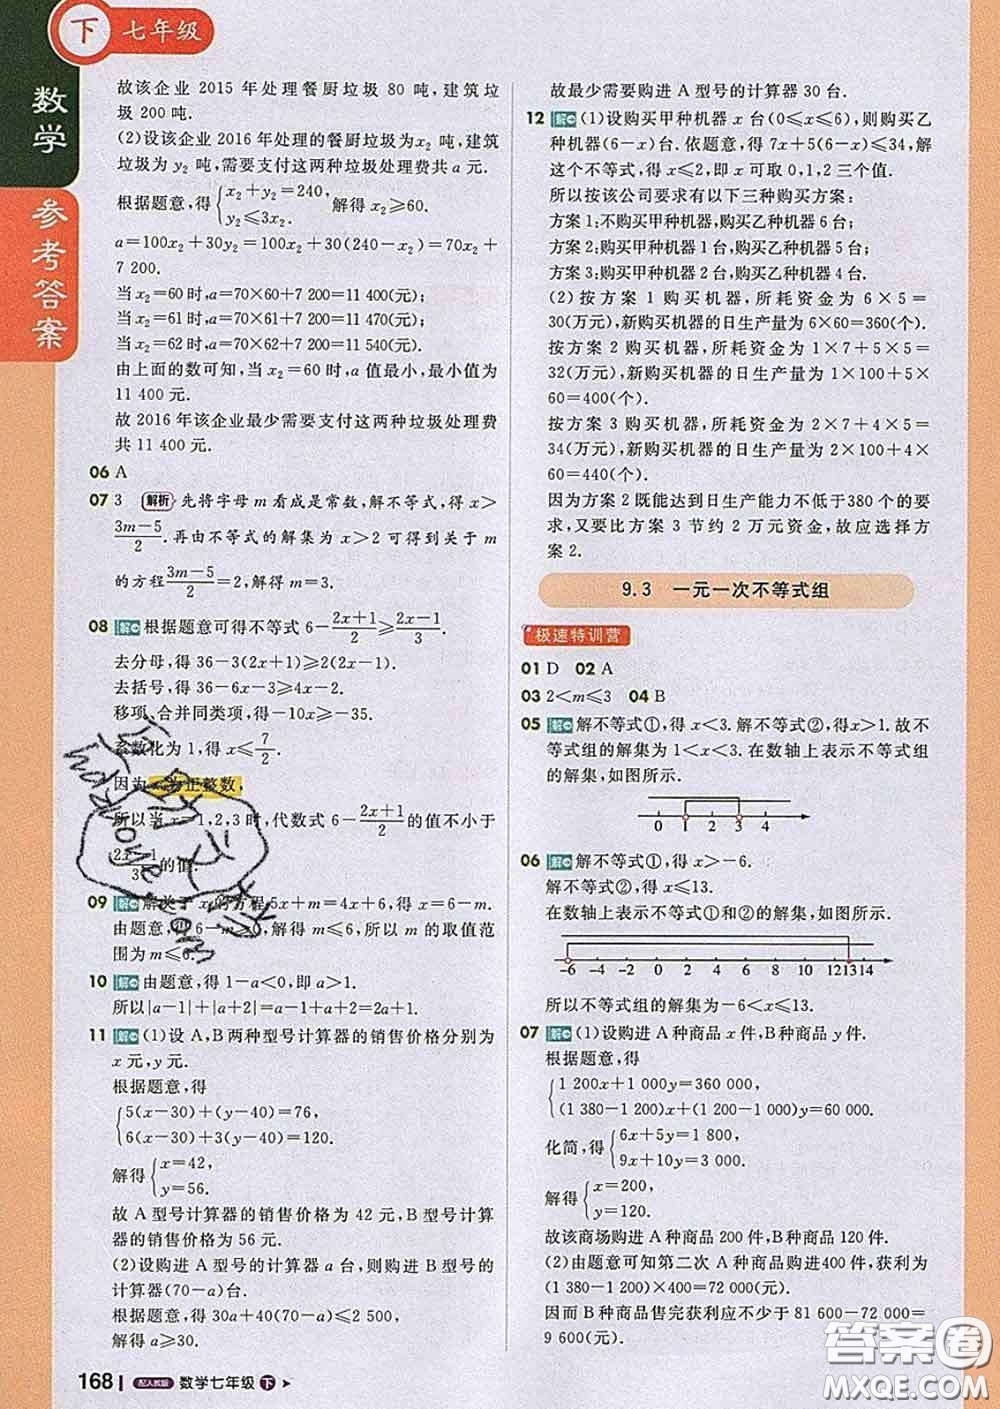 下 七年级
数学
参考答案
故该企业 2015 年处理餐厨垃圾 80 吨,建筑垃
圾 200 吨.
(2)设该企业 2016 年处理的餐厨垃圾为x₂ 吨,建筑
垃圾为 y₂ 吨,需要支付这两种垃圾处理费共 a 元.
根据题意,得{x₂+y₂=240, y₂≤3x₂. 解得 x₂≥60.
a=100x₂+30y₂=100x₂+30(240-x₂)=70x₂+
7 200.
当 x₂=60 时,a=70×60+7 200=11 400(元);
当 x₂=61 时,a=70×61+7 200=11 470(元);
当 x₂=62 时,a=70×62+7 200=11 540(元).
由上面的数可知,当 x₂=60 时,a 值最小,最小值为
11 400 元.
故 2016 年该企业最少需要支付这两种垃圾处理费
共 11 400 元.
06 A
07 3 解析 先将字母 m 看成是常数,解不等式,得 x>
(3m-5)/2. 再由不等式的解集为 x>2 可得到关于 m
的方程(3m-5)/2=2,解得 m=3.
08 解 根据题意可得不等式 6-(2x+1)/2≥(2x-1)/3.
去分母,得 36-3(2x+1)≥2(2x-1).
去括号,得 36-6x-3≥4x-2.
移项,合并同类项,得-10x≥-35.
系数化为 1,得 x≤7/2.
因为 x 为正整数,
所以当 x=1,2,3 时,代数式 6-(2x+1)/2的值不小于
(2x-1)/3的值.
09 解 解关于 x 的方程 5x+m=4x+6,得 x=6-m.
由题意,得 6-m≥0,解得 m≤6,所以 m 的取值范
围为 m≤6.
10 解 由题意,得 1-a<0,即 a>1.
所以|a-1|+|a+2|=a-1+a+2=2a+1.
11 解 (1)设 A,B两种型号计算器的销售价格分别为
x 元,y 元.
根据题意,得
{5(x-30)+(y-40)=76,
6(x-30)+3(y-40)=120.
解得{x=42, y=56.
故 A 型号计算器的销售价格为 42 元,B 型号计算
器的销售价格为 56 元.
(2)设购进 A 型号的计算器 a 台,则购进 B 型号的
计算器(70-a)台.
根据题意,得 30a+40(70-a)≤2 500,
解得 a≥30.
168 配人教版 数学七年级 下
故最少需要购进 A 型号的计算器 30 台.
12 解 (1)设购买甲种机器 x 台(0≤x≤6),则购买乙
种机器(6-x)台. 依题意,得 7x+5(6-x)≤34,解
这个不等式,得 x≤2,即 x 可取 0,1,2 三个值.
所以按该公司要求有以下三种购买方案:
方案 1:不购买甲种机器,购买乙种机器 6 台;
方案 2:购买甲种机器 1 台,购买乙种机器 5 台;
方案 3;购买甲种机器 2 台,购买乙种机器 4 台.
(2)按方案 1 购买机器,所耗资金为 6×5=
30(万元),新购买机器的日生产量为 6×60=360(个).
按方案 2 购买机器,所耗资金为 1×7+5×5=
32(万元),新购买机器的日生产量为 1×100+5×
60=400(个).
按方案 3 购买机器,所耗资金为 2×7+4×5=
34(万元),新购买机器的日生产量为 2×100+4×
60=440(个).
因为方案 2 既能达到日生产能力不低于380 个的要
求,又要比方案 3 节约 2 万元资金,故应选择方
案 2.
9.3 一元一次不等式组
极速特训营
01 D 02 A
03 2<m≤3 04 B
05 解 解不等式①,得 x<3. 解不等式②,得x>1. 故不
等式组的解集为 1<x<3. 在数轴上表示不等式组
的解集,如图所示.
0 1 2 3 4
06 解 解不等式①,得 x>-6.
解不等式②,得 x≤13.
在数轴上表示不等式①和②的解集,如图所示.
-6 -4 -2 0 2 4 6 8 10 12 13 14
所以不等式组的解集为-6<x≤13.
07 解 (1)设购进 A 种商品 x 件,B种商品 y 件.
根据题意,得
{1 200x+1 000y=360 000,
(1 380-1 200)x+(1 200-1 000)y=60 000.
化简,得{6x+5y=1 800, 9x+10y=3 000.
解得{x=200, y=120.
故该商场购进 A 种商品 200 件,B种商品 120 件.
(2)由题意可知第二次 A 种商品购进400 件,获利为
(1 380-1 200)×400=72 000(元).
因而 B 种商品售完获利应不少于 81 600-72 000=
9 600(元).
答案圈
MXQE.COM